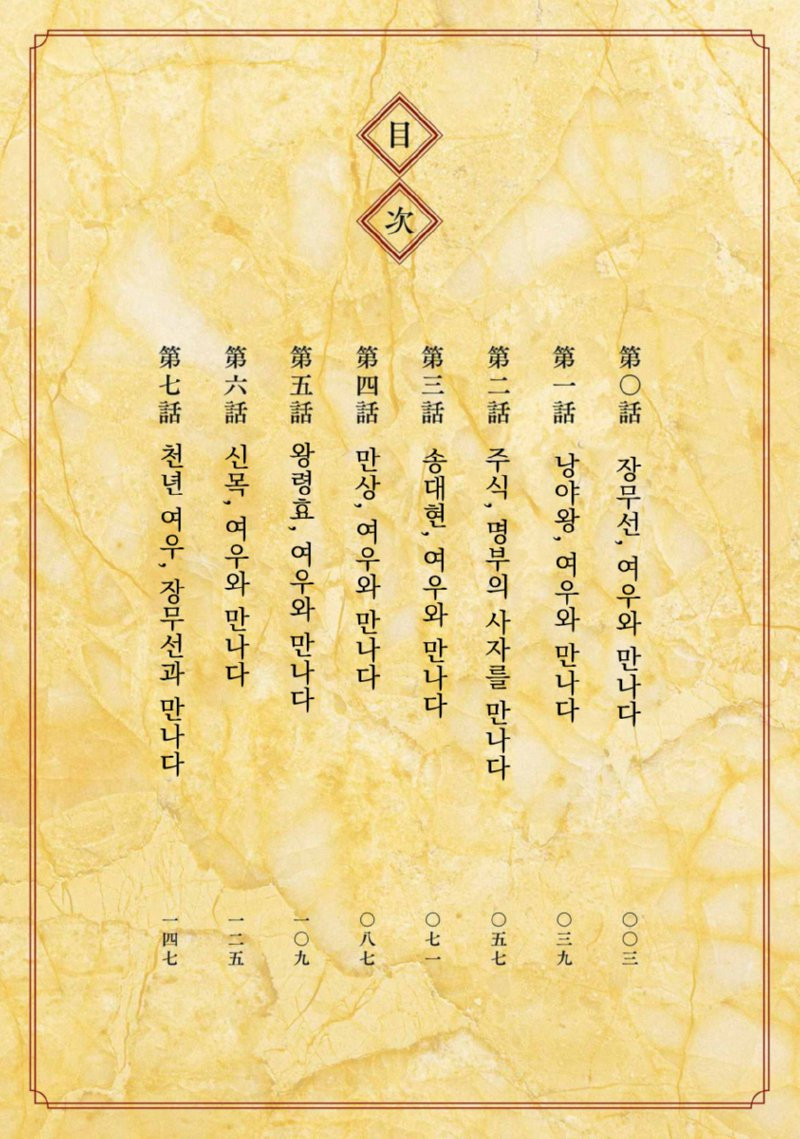 目次
第〇話 장무선, 여우와 만나다 〇〇三
第一話 낭야왕, 여우와 만나다 〇三九
第二話 주식, 명부의 사자를 만나다 〇五七
第三話 송대현, 여우와 만나다 〇七一
第四話 만상, 여우와 만나다 〇八七
第五話 왕령효, 여우와 만나다 一〇九
第六話 신목, 여우와 만나다 一二五
第七話 천년 여우, 장무선과 만나다 一四七